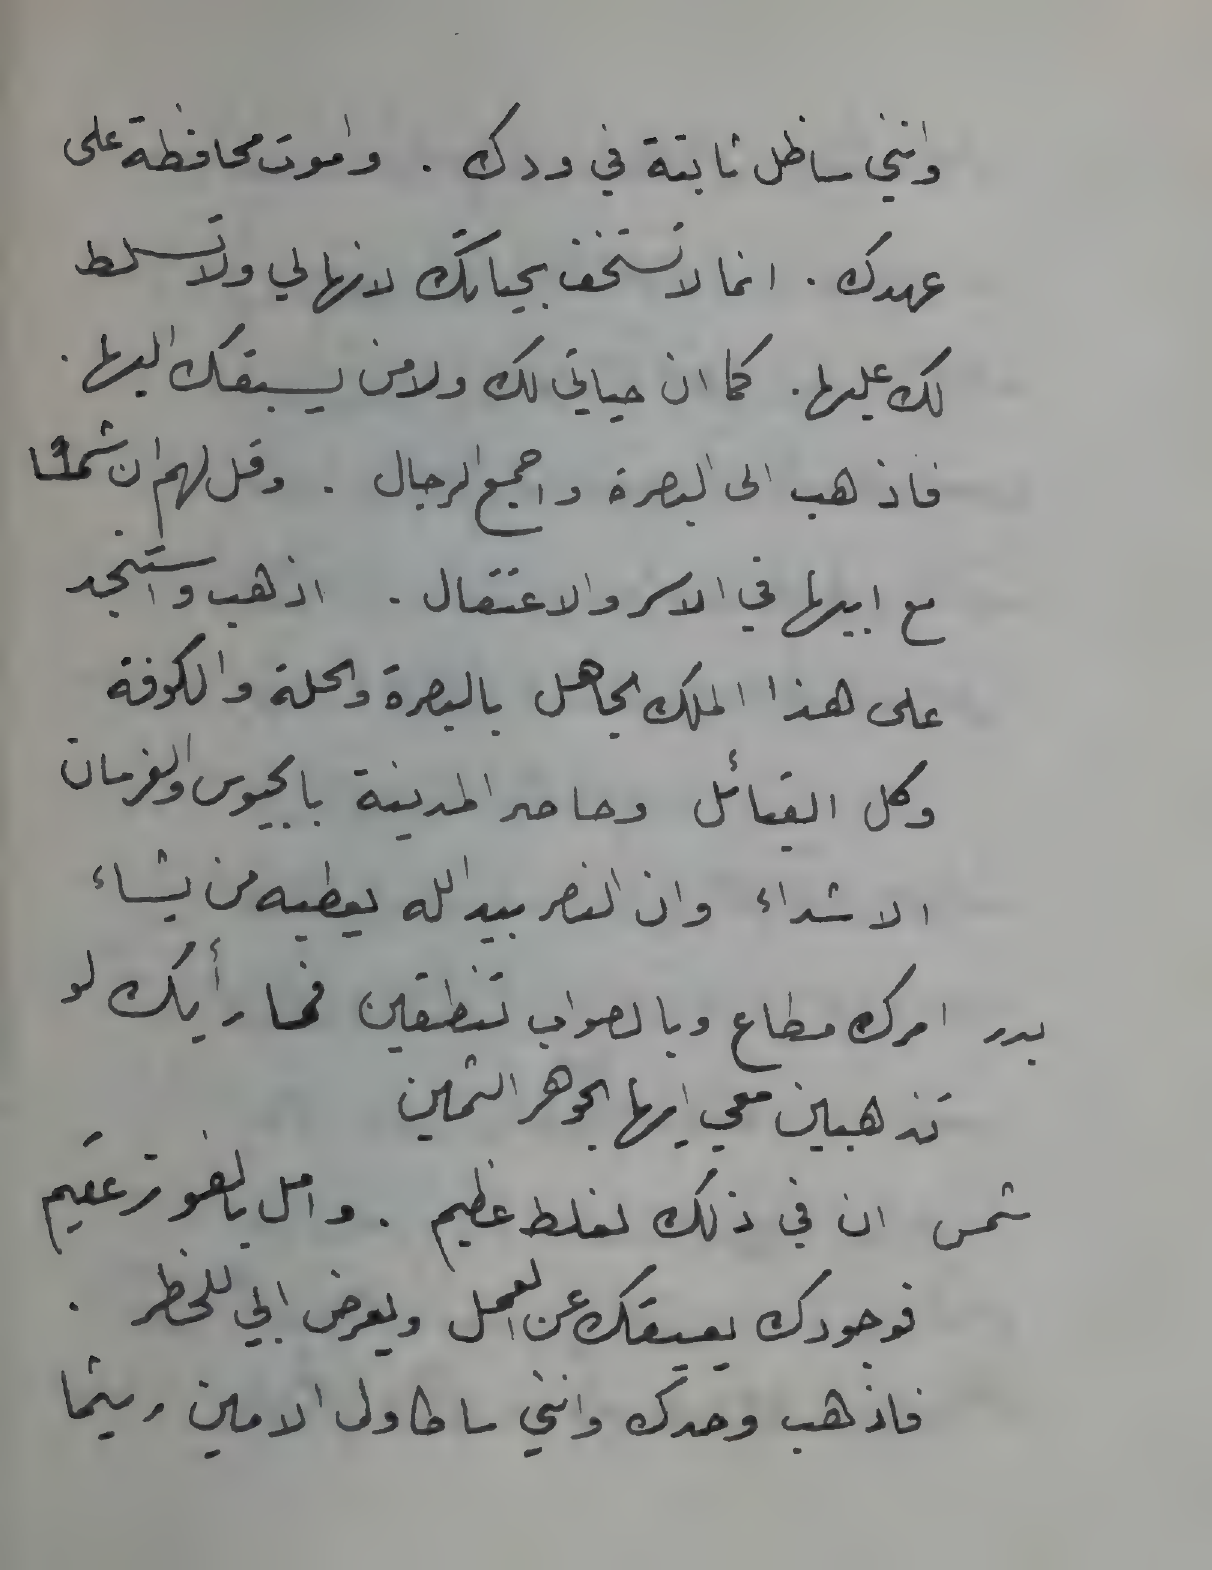 وانني ساظل ثابتة في ودك . واموت محافظة على
عهدك . انما لا تستخف بحياتك لانها لي ولا تسلط
لك عليها . كما ان حياتي لك ولا من يسبقك اليها .
فاذهب الى البصرة واجمع الرجال . وقل لهم ان شمسا
مع ابيها في الاسر والاعتقال . اذهب واستنجد
على هذا الملك الجاهل بالبصرة والحلة والكوفة
وكل القبائل وحاصر المدينة بالجيوش والفرسان
الاشداء وان النصر بيد الله يعطيه من يشاء
بدر امرك مطاع وبالصواب تنطقين فما رأيك لو
تذهبين معي ايها الجوهر الثمين
شمس ان في ذلك لغلط عظيم . وامل بالفوز عقيم
فوجودك يعيقك عن العمل ويعرض ابي للخطر .
فاذهب وحدك وانني ساطاول الامين ريثما